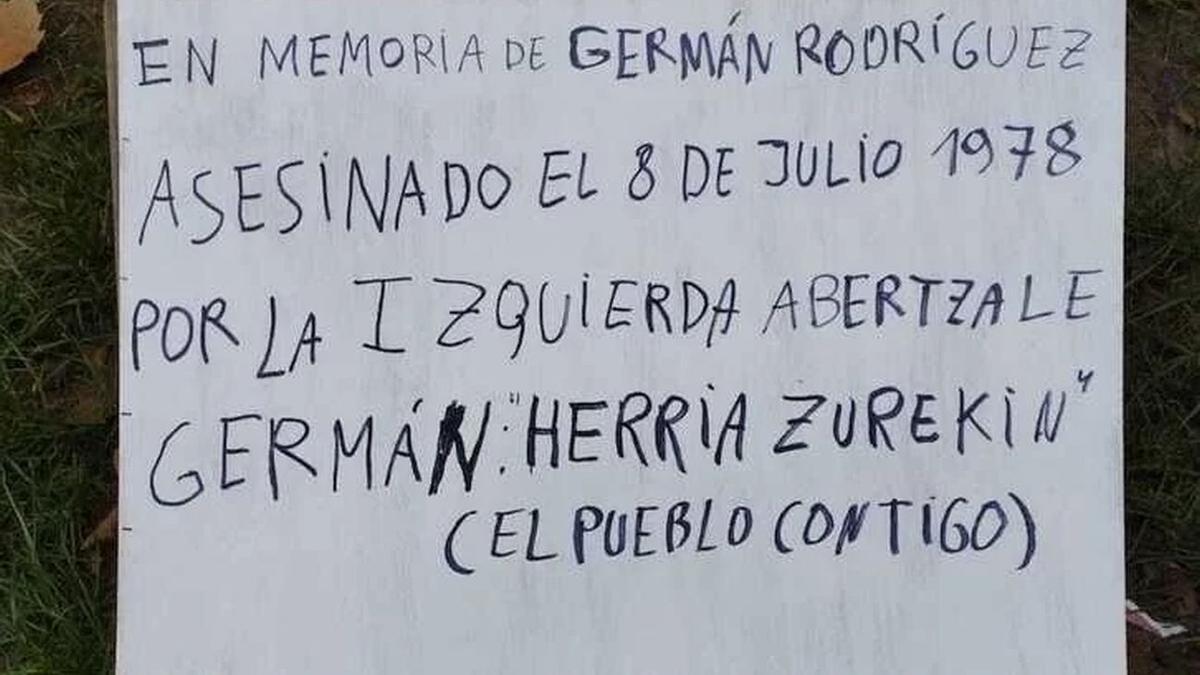 EN MEMORIA DE GERMÁN RODRÍGUEZ
ASESINADO EL 8 DE JULIO 1978
POR LA IZQUIERDA ABERTZALE
GERMÁN: "HERRIA ZUREKIN"
(EL PUEBLO CONTIGO)